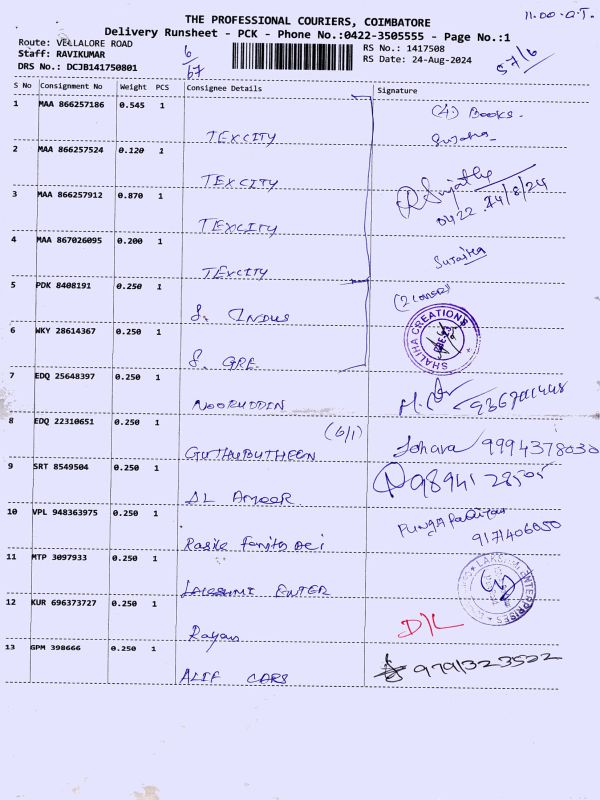 THE PROFESSIONAL COURIERS, COIMBATORE
11.00 - O.T.
Delivery Runsheet - PCK - Phone No.:0422-3505555 - Page No.:1
Route: VELLALORE ROAD
RS No.: 1417508
Staff: RAVIKUMAR
RS Date: 24-Aug-2024
DRS No.: DCJB141750801
6/67
57/6
S No Consignment No Weight PCS Consignee Details Signature
1 MAA 866257186 0.545 1 TEXCITY (4) Books.
2 MAA 866257524 0.120 1 TEXCITY Sujatha 24/8/24
0422
3 MAA 866257912 0.870 1 TEXCITY
4 MAA 867026095 0.200 1 TEXCITY
5 PDK 8408191 0.250 1 S. INDUS
SHALIHA CREATIONS
6 WKY 28614367 0.250 1 S. GRE.
7 EDQ 25648397 0.250 1 NOORUDDIN
8 EDQ 22310651 0.250 1 GUTHUBUTHEEN (6/1) Johara 9994378030
9 SRT 8549504 0.250 1 AL AMEER 9894128505
10 VPL 948363975 0.250 1 9171406050
11 MTP 3097933 0.250 1 LAKSHMI ENTER
LAKSHMI ENTERPRISES
12 KUR 696373727 0.250 1 Rayan D/L
13 GPM 398666 0.250 1 ALIF CARS 9791323522